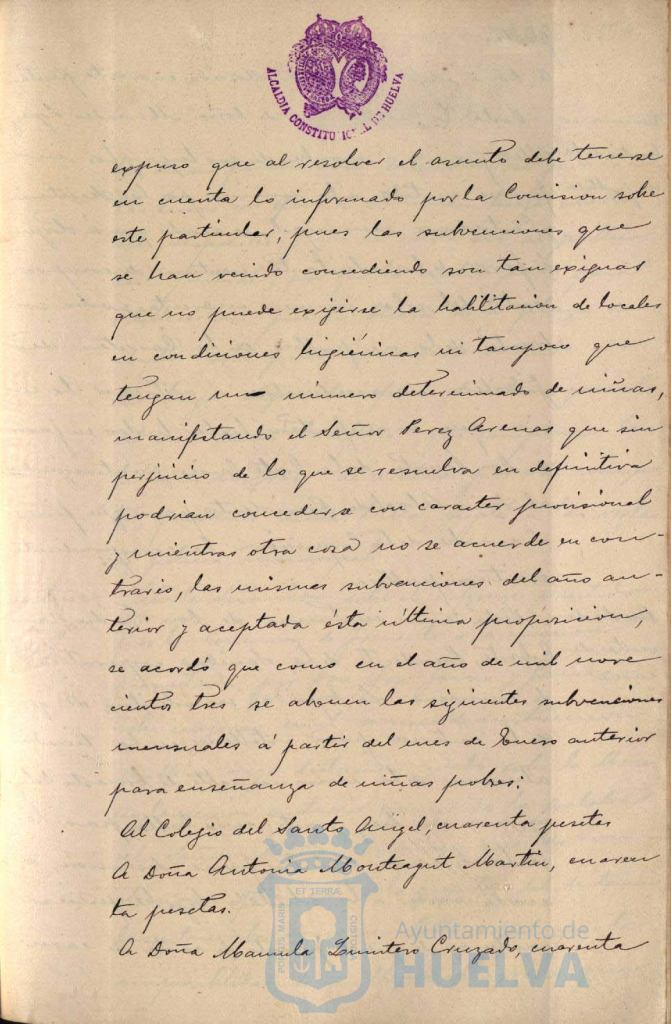 ALCALDIA CONSTITUCIONAL DE HUELVA
expuso que al resolver el asunto debe tenerse
en cuenta lo informado por la Comision sobre
este particular, pues las subvenciones que
se han venido concediendo son tan exiguas
que no puede exigirse la habilitacion de locales
en condiciones higiénicas ni tampoco que
tengan un número determinado de niñas,
manifestando el Señor Perez Arenas que sin
perjuicio de lo que se resuelva en definitiva
podrian concederse con caracter provisional
y mientras otra cosa no se acuerde en con-
trario, las mismas subvenciones del año an-
terior y aceptada ésta última proposicion,
se acordó que como en el año de mil nove
cientos tres se abonen las siguientes subvenciones
mensuales á partir del mes de Enero anterior
para enseñanza de niñas pobres:
Al Colegio del Santo Angel, cuarenta pesetas
A Doña Antonia Monteagut Martin, cuaren
ta pesetas.
A Doña Manuela Quintero Cruzado, cuarenta
PORTUS MARIS
ET TERRÆ
CUSTODIA
Ayuntamiento de
HUELVA